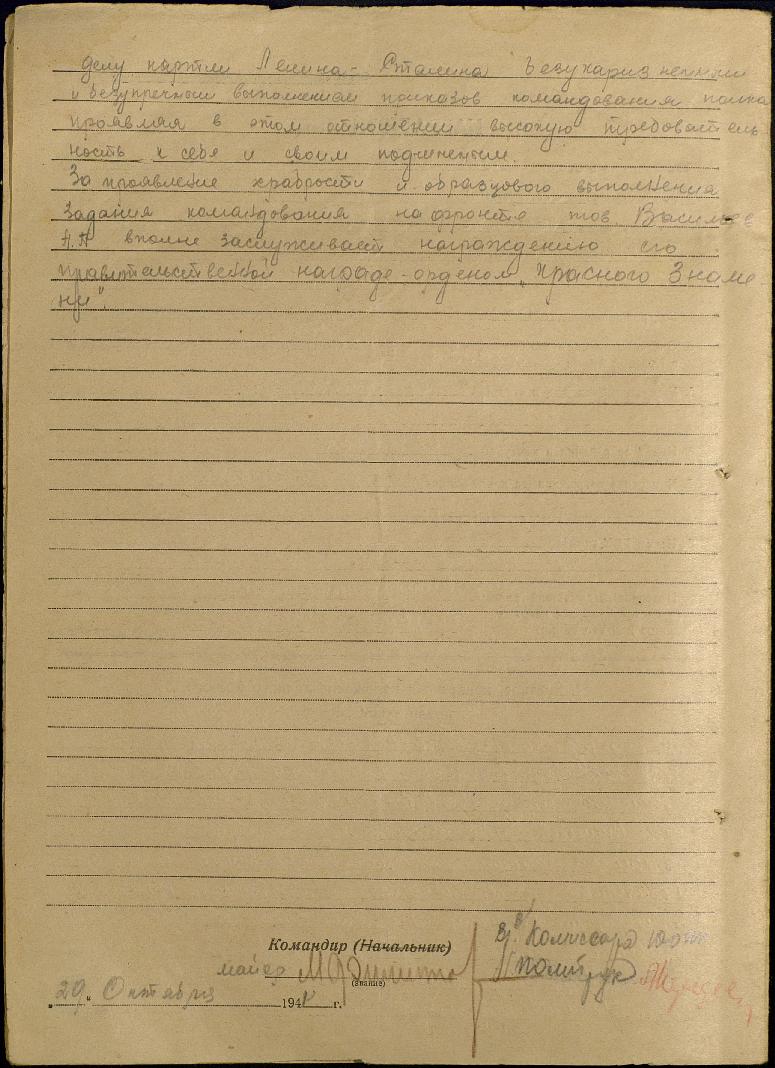 делу партии Ленина-Сталина безукоризненным
и безупречным выполнением приказов командования полка
проявляя в этом отношении высокую требователь
ность к себе и своим подчиненным.
За проявление храбрости и образцового выполнения
задания командования на фронте тов Васильев
вполне заслуживает награждению его
правительственной награде-орденом „Красного Знаме
ни".
Командир (Начальник)
майор
(звание)
Комиссара
политрук
„29" Октября 194 г.